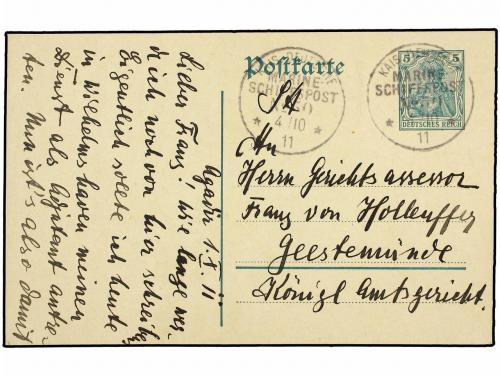 Agadir 1. X. 11
Lieber Franz, wie lange wer-
de ich noch von hier schreiben
Eigentlich sollte ich heute
in Wilhelmshaven meinen
Dienst als Adjutant antre-
ten. Nun ist's also damit
Postkarte
KAIS. DEUTSCHE
MARINE-
SCHIFFSPOST
* 4/10 *
11
KAIS. DEUTSCHE
MARINE-
SCHIFFSPOST
11
5 5
DEUTSCHES REICH
An
Herrn Gerichtsassessor
Franz von Holleuffer
Geestemünde
Königl Amtsgericht.